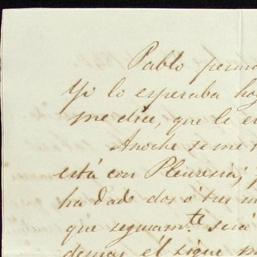 Pablo
Yo lo esperaba hoy
me dice, que le
Anoche se me
está con Pleuresia,
ha dado dos ó tres
que seguram.te será
demas él sigue